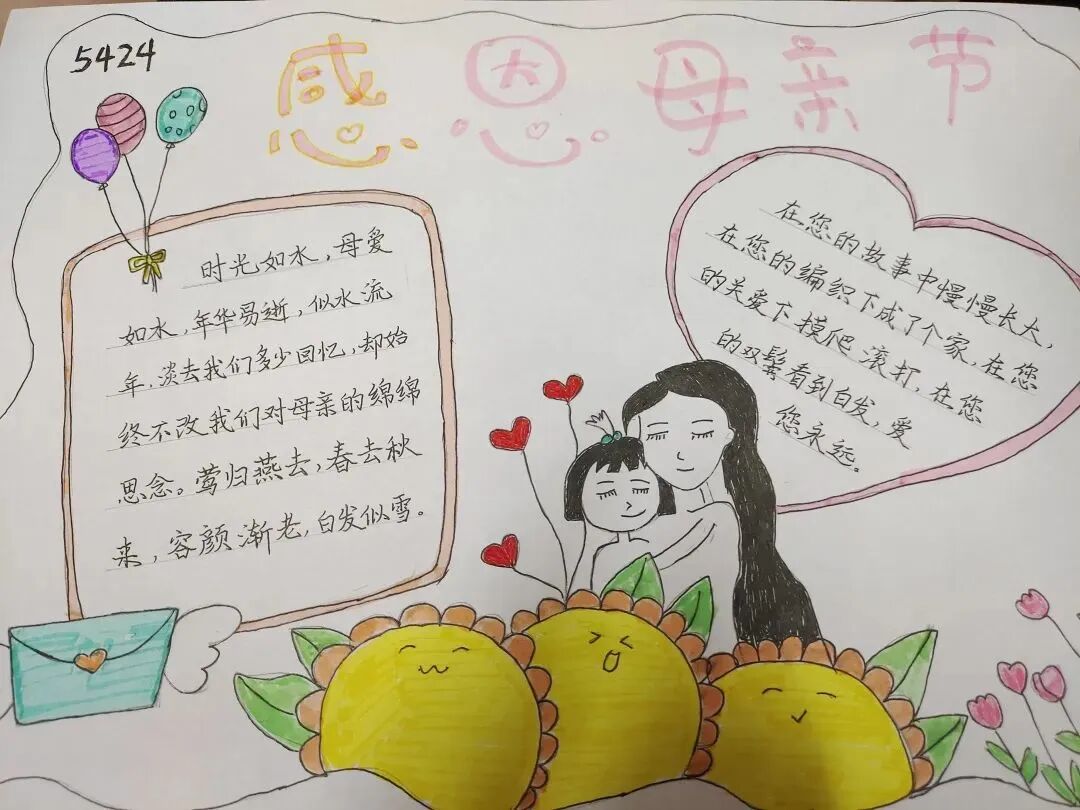 5424
感恩母亲节
时光如水，母爱
如水，年华易逝，似水流
年，淡去我们多少回忆，却始
终不改我们对母亲的绵绵
思念。莺归燕去，春去秋
来，容颜渐老，白发似雪。
在您的故事中慢慢长大，
在您的编织下成了个家，在您
的关爱下摸爬滚打，在您
的双鬓看到白发，爱
您永远。